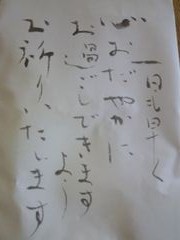 一日も早く
心おだやかに
お過ごしできます
よう
お祈りいたします